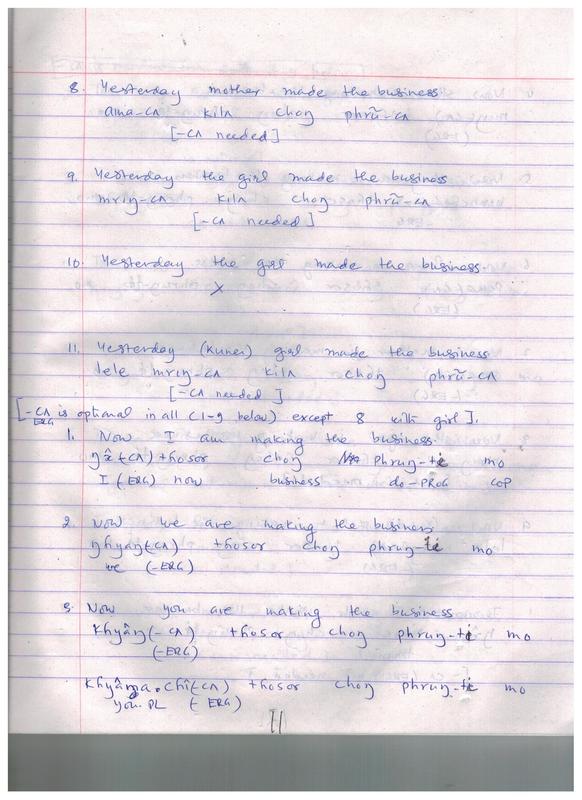 8. Yesterday mother made the business
ama-cʌ kilʌ choŋ phrũ-cʌ
[-cʌ needed]
9. Yesterday the girl made the business
mriŋ-cʌ kilʌ choŋ phrũ-cʌ
[-cʌ needed]
10. Yesterday the girl made the business.
X
11. Yesterday (Kunei) girl made the business.
lele mriŋ-cʌ kilʌ choŋ phrũ-cʌ
[-cʌ needed]
[-cʌ is optional in all (1-9 below) except 8 with girl].
ERG
1. Now I am making the business.
(cʌ) tɦosor choŋ phruŋ-tɨ mo
I (ERG) now business do-PROG COP
2. Now we are making the business
(cʌ) tɦosor choŋ phruŋ-tɨ mo
we (-ERG)
3. Now you are making the business
khyâŋ(-cʌ) tɦosor choŋ phruŋ-tɨ mo
(-ERG)
(-cʌ) tɦosor choŋ phruŋ-tɨ mo
you.PL (ERG)
11